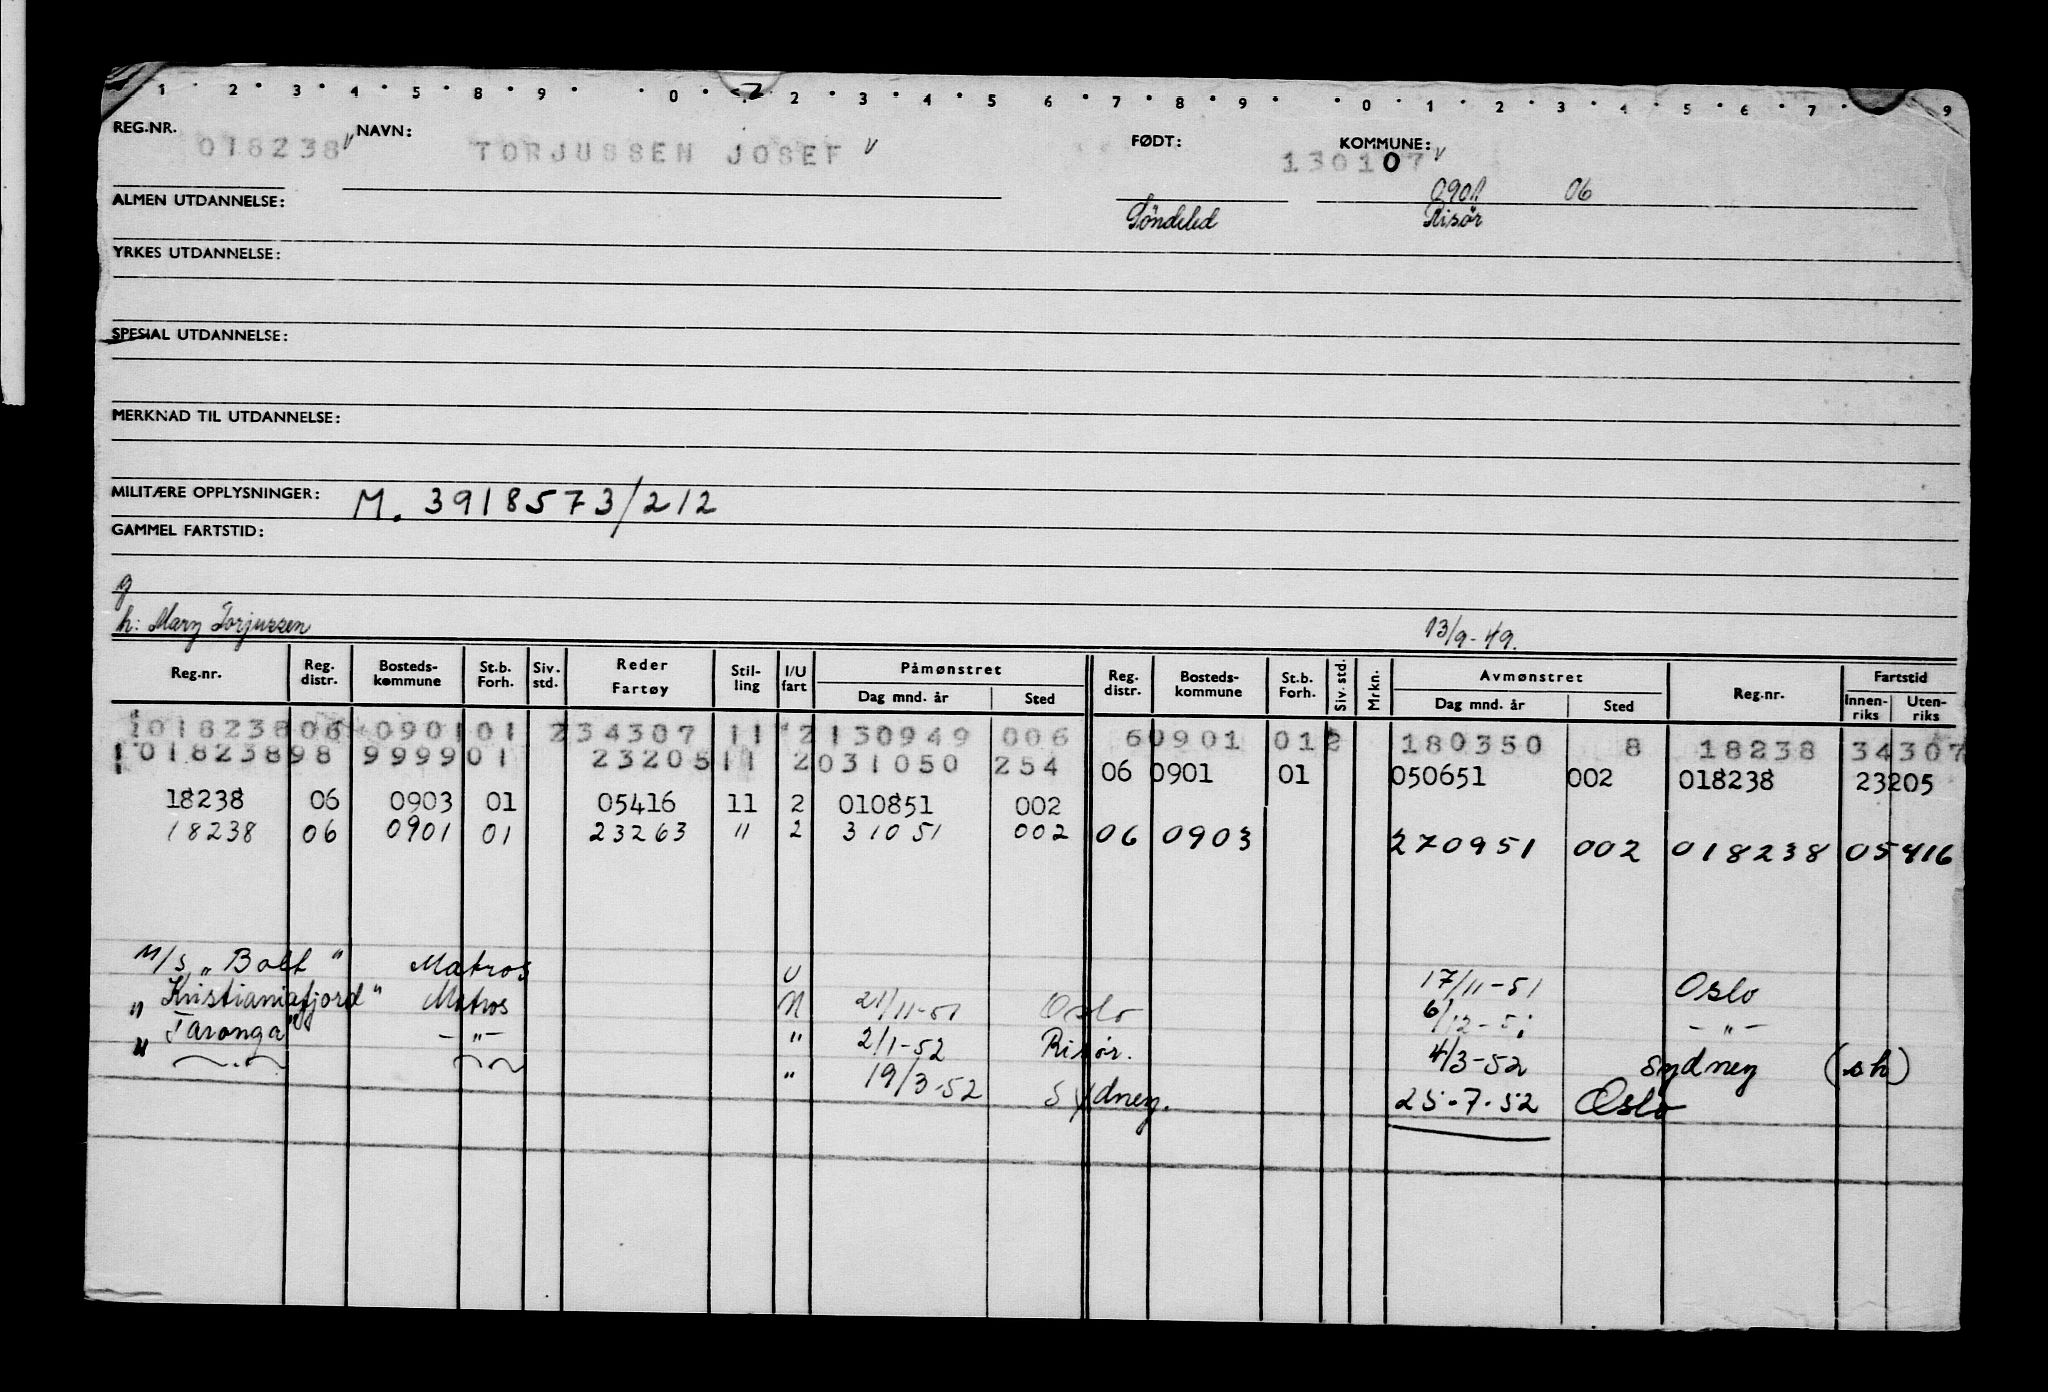 1 2 3 4 5 8 9 0 2 3 4 5 6 7 8 9 0 1 2 3 4 5 6 7 9
REG.NR. 018238 NAVN: TORJUSSEN JOSEF FØDT: 130107 KOMMUNE:
0901 06
ALMEN UTDANNELSE: Söndeled Risør
YRKES UTDANNELSE:
SPESIAL UTDANNELSE:
MERKNAD TIL UTDANNELSE:
MILITÆRE OPPLYSNINGER: M. 3918573/212
GAMMEL FARTSTID:
g
h: Mary Torjussen 13/9-49.
Reg.nr. Reg. distr. Bosteds-kommune St.b. Forh. Siv. std. Reder Fartøy Stil-ling I/U fart Påmønstret Dag mnd. år Sted Reg. distr. Bosteds-kommune St.b. Forh. Siv. std. Mrkn. Avmønstret Dag mnd. år Sted Reg.nr. Fartstid Innen-riks Uten-riks
101823806 090101 234307 11 2130949 006 60901 012 180350 8 18238 34307
101823898 999901 2320511 2031050 254 06 0901 01 050651 002 018238 23205
18238 06 0903 01 05416 11 2 010851 002
18238 06 0901 01 23263 " 2 31051 002 06 0903 270951 002 018238 05416
M/S "Balt" Matros U 17/11-51 Oslo
" Kristianiafjord" Matros 21/11-51 Oslo 6/12-51 - " -
" Taronga" - " - " 2/1-52 Risør. 4/3-52 Sydney (sh)
" 19/3-52 Sydney. 25.7.52 Oslo